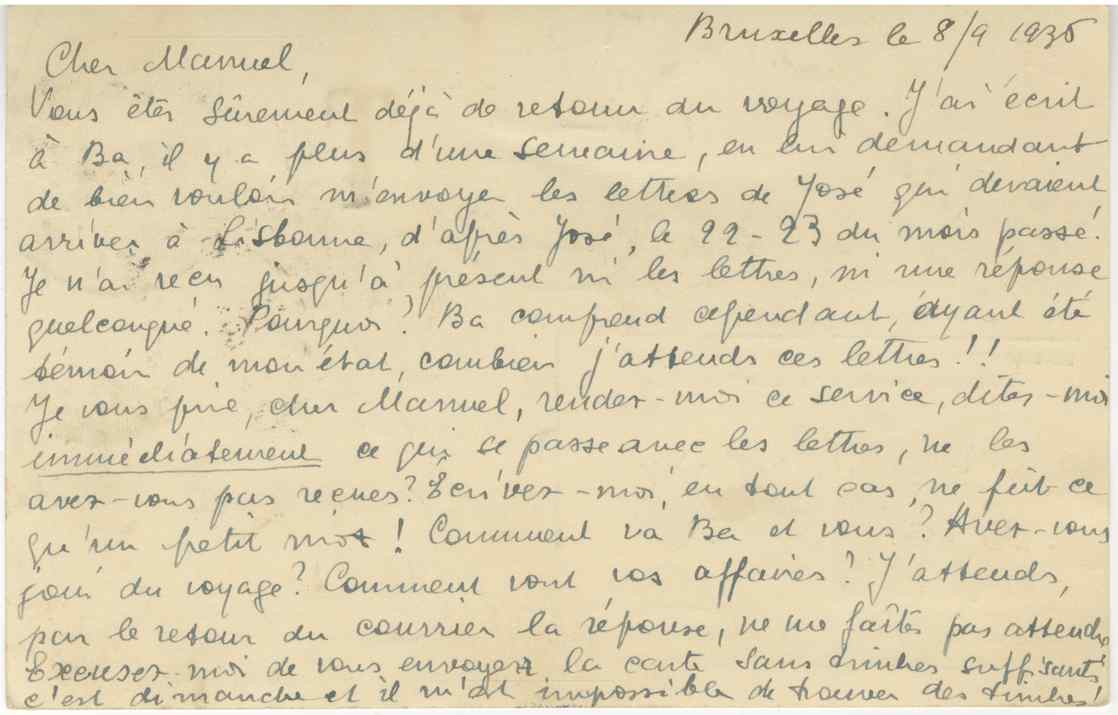 Bruxelles le 8/9 1935
Cher Manuel,
Vous êtes sûrement déjà de retour du voyage. J'ai écrit
à Ba, il y a plus d'une semaine, en lui demandant
de bien vouloir m'envoyer les lettres de José qui devaient
arriver à Lisbonne, d'après José, le 22-23 du mois passé.
Je n'ai reçu jusqu'à présent ni les lettres, ni une réponse
quelconque. Pourquoi? Ba comprend cependant, ayant été
témoin de mon état, combien j'attends ces lettres!!
Je vous prie, cher Manuel, rendez-moi ce service, dites-moi
immédiatement ce qui se passe avec les lettres, ne les
avez-vous pas reçues? Écrivez-moi, en tout cas, ne fût ce
qu'un petit mot! Comment va Ba et vous? Avez-vous
joui du voyage? Comment vont vos affaires? J'attends,
par le retour du courrier la réponse, ne me faîtes pas attendre
Excusez-moi de vous envoyer la carte sans timbres suffisants
c'est dimanche et il m'est impossible de trouver des timbres!